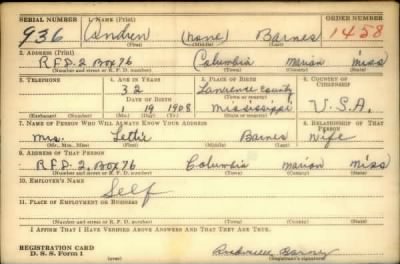 SERIAL NUMBER 1. NAME (Print) ORDER NUMBER
936 Andrew (none) Barnes 1458
(First) (Middle) (Last)
2. ADDRESS (Print)
R.F.D. 2 Box 76 Columbia Marion Miss
(Number and street or R. F. D. number) (Town) (County) (State)
3. TELEPHONE 4. AGE IN YEARS 5. PLACE OF BIRTH 6. COUNTRY OF CITIZENSHIP
32 Lawrence County
DATE OF BIRTH (Town or county)
1 19 1908 Mississippi U.S.A.
(Exchange) (Number) (Mo.) (Day) (Yr.) (State or country)
7. NAME OF PERSON WHO WILL ALWAYS KNOW YOUR ADDRESS 8. RELATIONSHIP OF THAT PERSON
Mrs. Lettie Barnes Wife
(Mr., Mrs., Miss) (First) (Middle) (Last)
9. ADDRESS OF THAT PERSON
R.F.D. 2, Box 76 Columbia Marion Miss
(Number and street or R. F. D. number) (Town) (County) (State)
10. EMPLOYER'S NAME
Self
11. PLACE OF EMPLOYMENT OR BUSINESS
(Number and street or R. F. D. number) (Town) (County) (State)
I AFFIRM THAT I HAVE VERIFIED ABOVE ANSWERS AND THAT THEY ARE TRUE.
REGISTRATION CARD
D. S. S. Form 1 (over) (Registrant's signature)